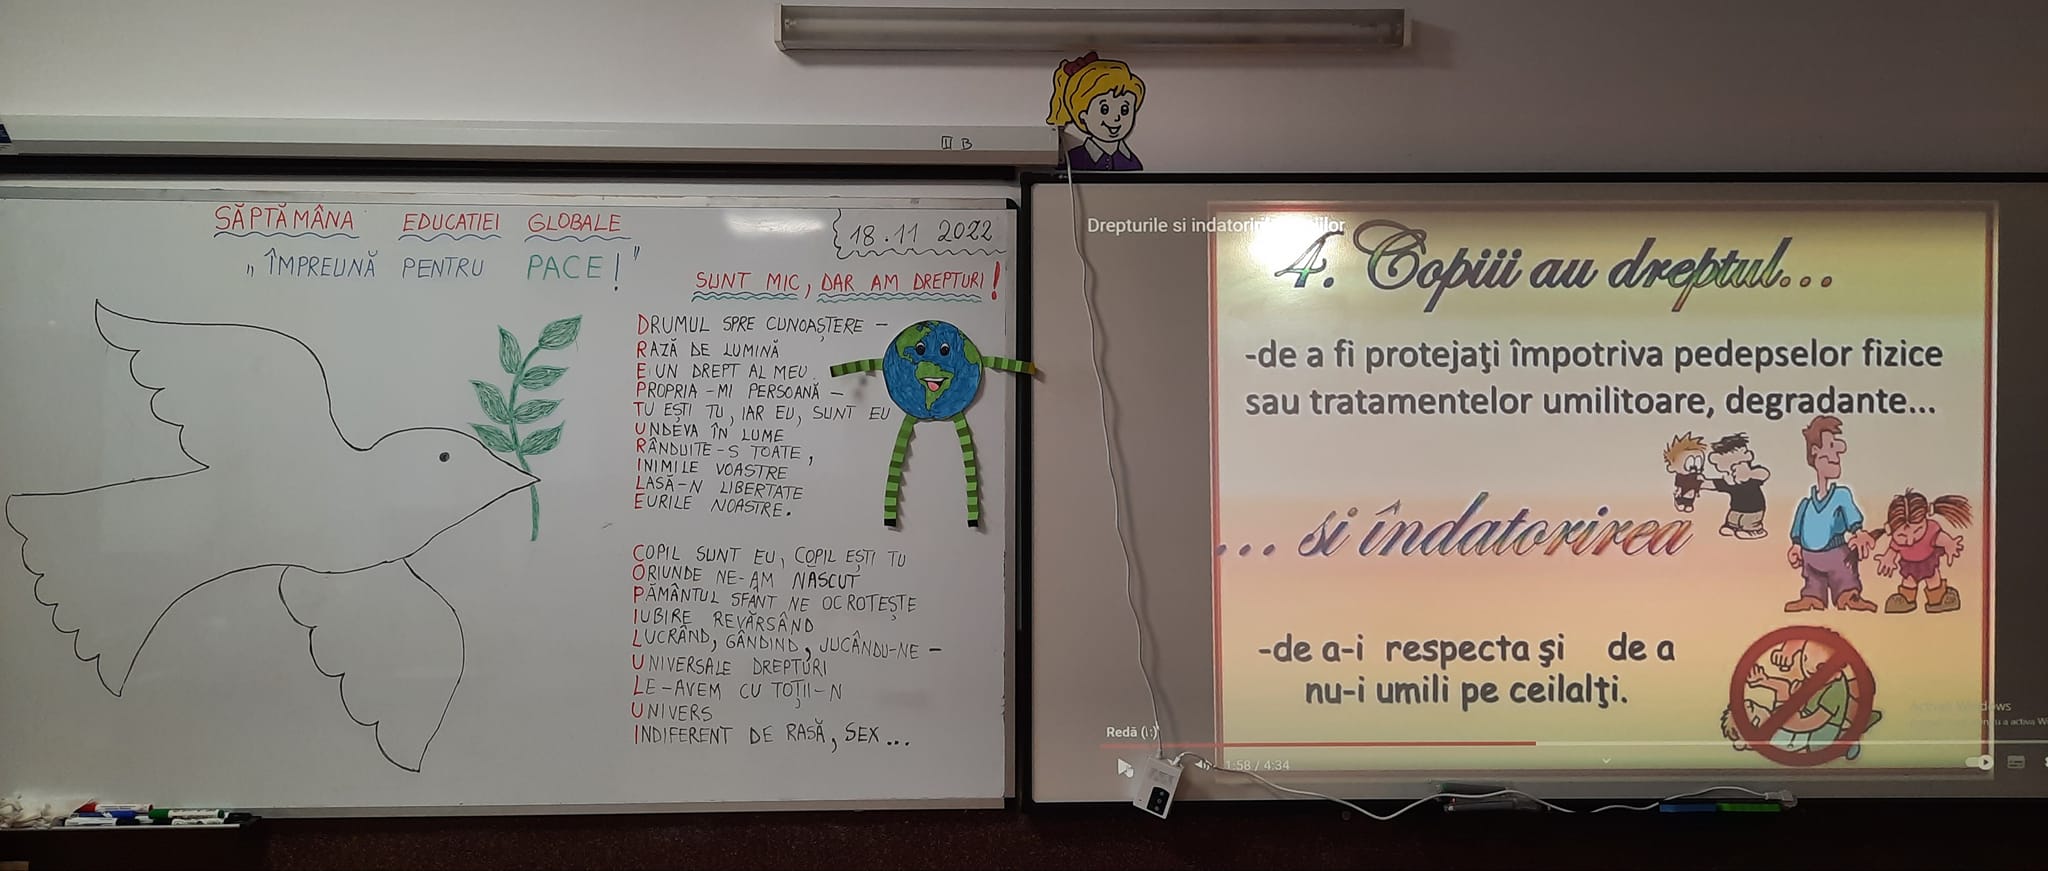 II B
SĂPTĂMÂNA EDUCATIEI GLOBALE
„ÎMPREUNĂ PENTRU PACE!"
18.11 2022
SUNT MIC, DAR AM DREPTURI!
DRUMUL SPRE CUNOAȘTERE –
RAZĂ DE LUMINĂ
E UN DREPT AL MEU.
PROPRIA-MI PERSOANĂ –
TU EȘTI TU, IAR EU, SUNT EU
UNDEVA ÎN LUME
RÂNDUITE-S TOATE,
INIMILE VOASTRE
LASĂ-N LIBERTATE
EURILE NOASTRE.
COPIL SUNT EU, COPIL EȘTI TU
ORIUNDE NE-AM NASCUT
PĂMÂNTUL SFÂNT NE OCROTEȘTE
IUBIRE REVĂRSÂND
LUCRÂND, GÂNDIND, JUCÂNDU-NE –
UNIVERSALE DREPTURI
LE-AVEM CU TOȚII-N
UNIVERS
INDIFERENT DE RASĂ, SEX...
Drepturile si
4. Copiii au dreptul...
-de a fi protejaţi împotriva pedepselor fizice
sau tratamentelor umilitoare, degradante...
... si îndatorirea
-de a-i respecta şi de a
nu-i umili pe ceilalţi.
Redă
1:58 / 4:34